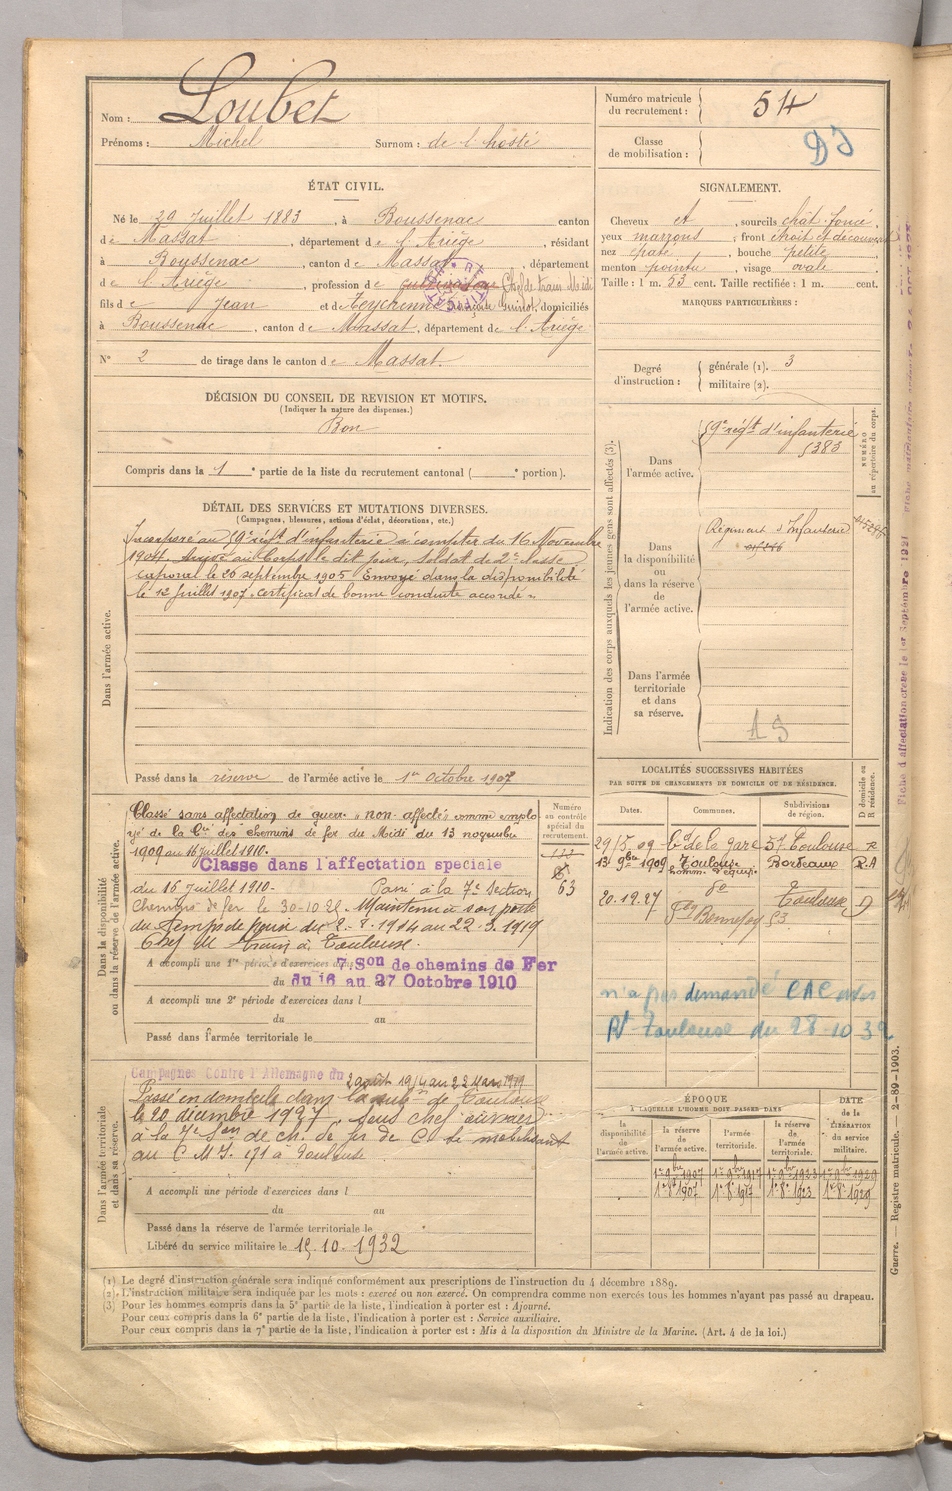 Nom : Loubet
Prénoms : Michel Surnom : de l'hosté
Numéro matricule du recrutement : 54
Classe de mobilisation :
ÉTAT CIVIL.
Né le 29 Juillet 1883, à Boussenac canton
de Massat, département de l'Ariège, résidant
à Boussenac, canton de Massat, département
de l'Ariège, profession de cultivateur Chef de train Midi
fils de Jean et de Teychenné Guinot, domiciliés
à Boussenac, canton de Massat, département de l'Ariège
N° 2 de tirage dans le canton de Massat.
SIGNALEMENT.
Cheveux et, sourcils chât. foncé,
yeux marrons, front étroit et découvert
nez épaté, bouche petite,
menton pointu, visage ovale
Taille : 1 m. 53 cent. Taille rectifiée : 1 m. cent.
MARQUES PARTICULIÈRES :
Degré d'instruction :
générale (1). 3
militaire (2).
DÉCISION DU CONSEIL DE REVISION ET MOTIFS.
(Indiquer la nature des dispenses.)
Bon
Compris dans la 1e partie de la liste du recrutement cantonal ( e portion).
DÉTAIL DES SERVICES ET MUTATIONS DIVERSES.
(Campagnes, blessures, actions d'éclat, décorations, etc.)
Dans l'armée active.
Incorporé au 59e régt d'infanterie à compter du 16 Novembre
1904. Arrivé au Corps le dit jour, Soldat de 2e classe
caporal le 26 septembre 1905 Envoyé dans la disponibilité
le 12 Juillet 1907. Certificat de bonne conduite accordé.
Passé dans la réserve de l'armée active le 1er Octobre 1907
Indication des corps auxquels les jeunes gens sont affectés (3).
Dans l'armée active.
59e régt d'infanterie
5383
NUMÉRO au répertoire du corps.
Dans la disponibilité ou dans la réserve de l'armée active.
Régiment d'Infanterie
Dans l'armée territoriale et dans sa réserve.
Dans la disponibilité ou dans la réserve de l'armée active.
Classé sans affectation de guerre "non-affecté" comme emplo
yé de la Cie des chemins de fer du Midi du 13 novembre
1909 au 16 juillet 1910.
Classe dans l'affectation speciale
du 16 Juillet 1910. Passé à la 7e Section
chemins de fer le 30-10-25. Maintenu à son poste
du temps de guerre du 2-8-1914 au 22-3-1919
Chef de train à Toulouse.
A accompli une 1re période d'exercices dans 7e Son de chemins de Fer
du 16 au 27 Octobre 1910
A accompli une 2e période d'exercices dans l
du au
Passé dans l'armée territoriale le
Numéro au contrôle spécial du recrutement.
63
LOCALITÉS SUCCESSIVES HABITÉES
PAR SUITE DE CHANGEMENTS DE DOMICILE OU DE RÉSIDENCE.
Dates. Communes. Subdivisions de région. D domicile ou R résidence.
29/5 09 Bd de la Gare 57 Toulouse R
13 9bre 1909 Toulouse Bordeaux R.A
homme d'équipe
20.12.27 do Toulouse D
Fbg Bonnefoy 53
n'a pas demandé CAC
Rt Toulouse du 28-10 32
Dans l'armée territoriale et dans sa réserve.
Campagnes Contre l'Allemagne du 2 août 1914 au 22 Mars 1919
Passé en domicile dans la subon de Toulouse
le 20 décembre 1927. Sous chef ouvrier
à la 7e Son de ch. de fer de C. se mobilisant
au C.M.I. 171 à Toulouse
A accompli une période d'exercices dans l
du au
Passé dans la réserve de l'armée territoriale le
Libéré du service militaire le 15-10-1932
ÉPOQUE
À LAQUELLE L'HOMME DOIT PASSER DANS
la disponibilité de l'armée active. la réserve de l'armée active. l'armée territoriale. la réserve de l'armée territoriale. DATE de la LIBÉRATION du service militaire.
1er 9bre 1907 1er 9bre 1917 1er 9bre 1923 1er 9bre 1929
1er 8bre 1907 1er 8e 1917 1er 8e 1923 1er 8e 1929
(1) Le degré d'instruction générale sera indiqué conformément aux prescriptions de l'instruction du 4 décembre 1889.
(2) L'instruction militaire sera indiquée par les mots : exercé ou non exercé. On comprendra comme non exercés tous les hommes n'ayant pas passé au drapeau.
(3) Pour les hommes compris dans la 5e partie de la liste, l'indication à porter est : Ajourné.
Pour ceux compris dans la 6e partie de la liste, l'indication à porter est : Service auxiliaire.
Pour ceux compris dans la 7e partie de la liste, l'indication à porter est : Mis à la disposition du Ministre de la Marine. (Art. 4 de la loi.)
Guerre. — Registre matricule. — 2-89-1903.
Fiche d'affectation creée le 1er Septembre 1921